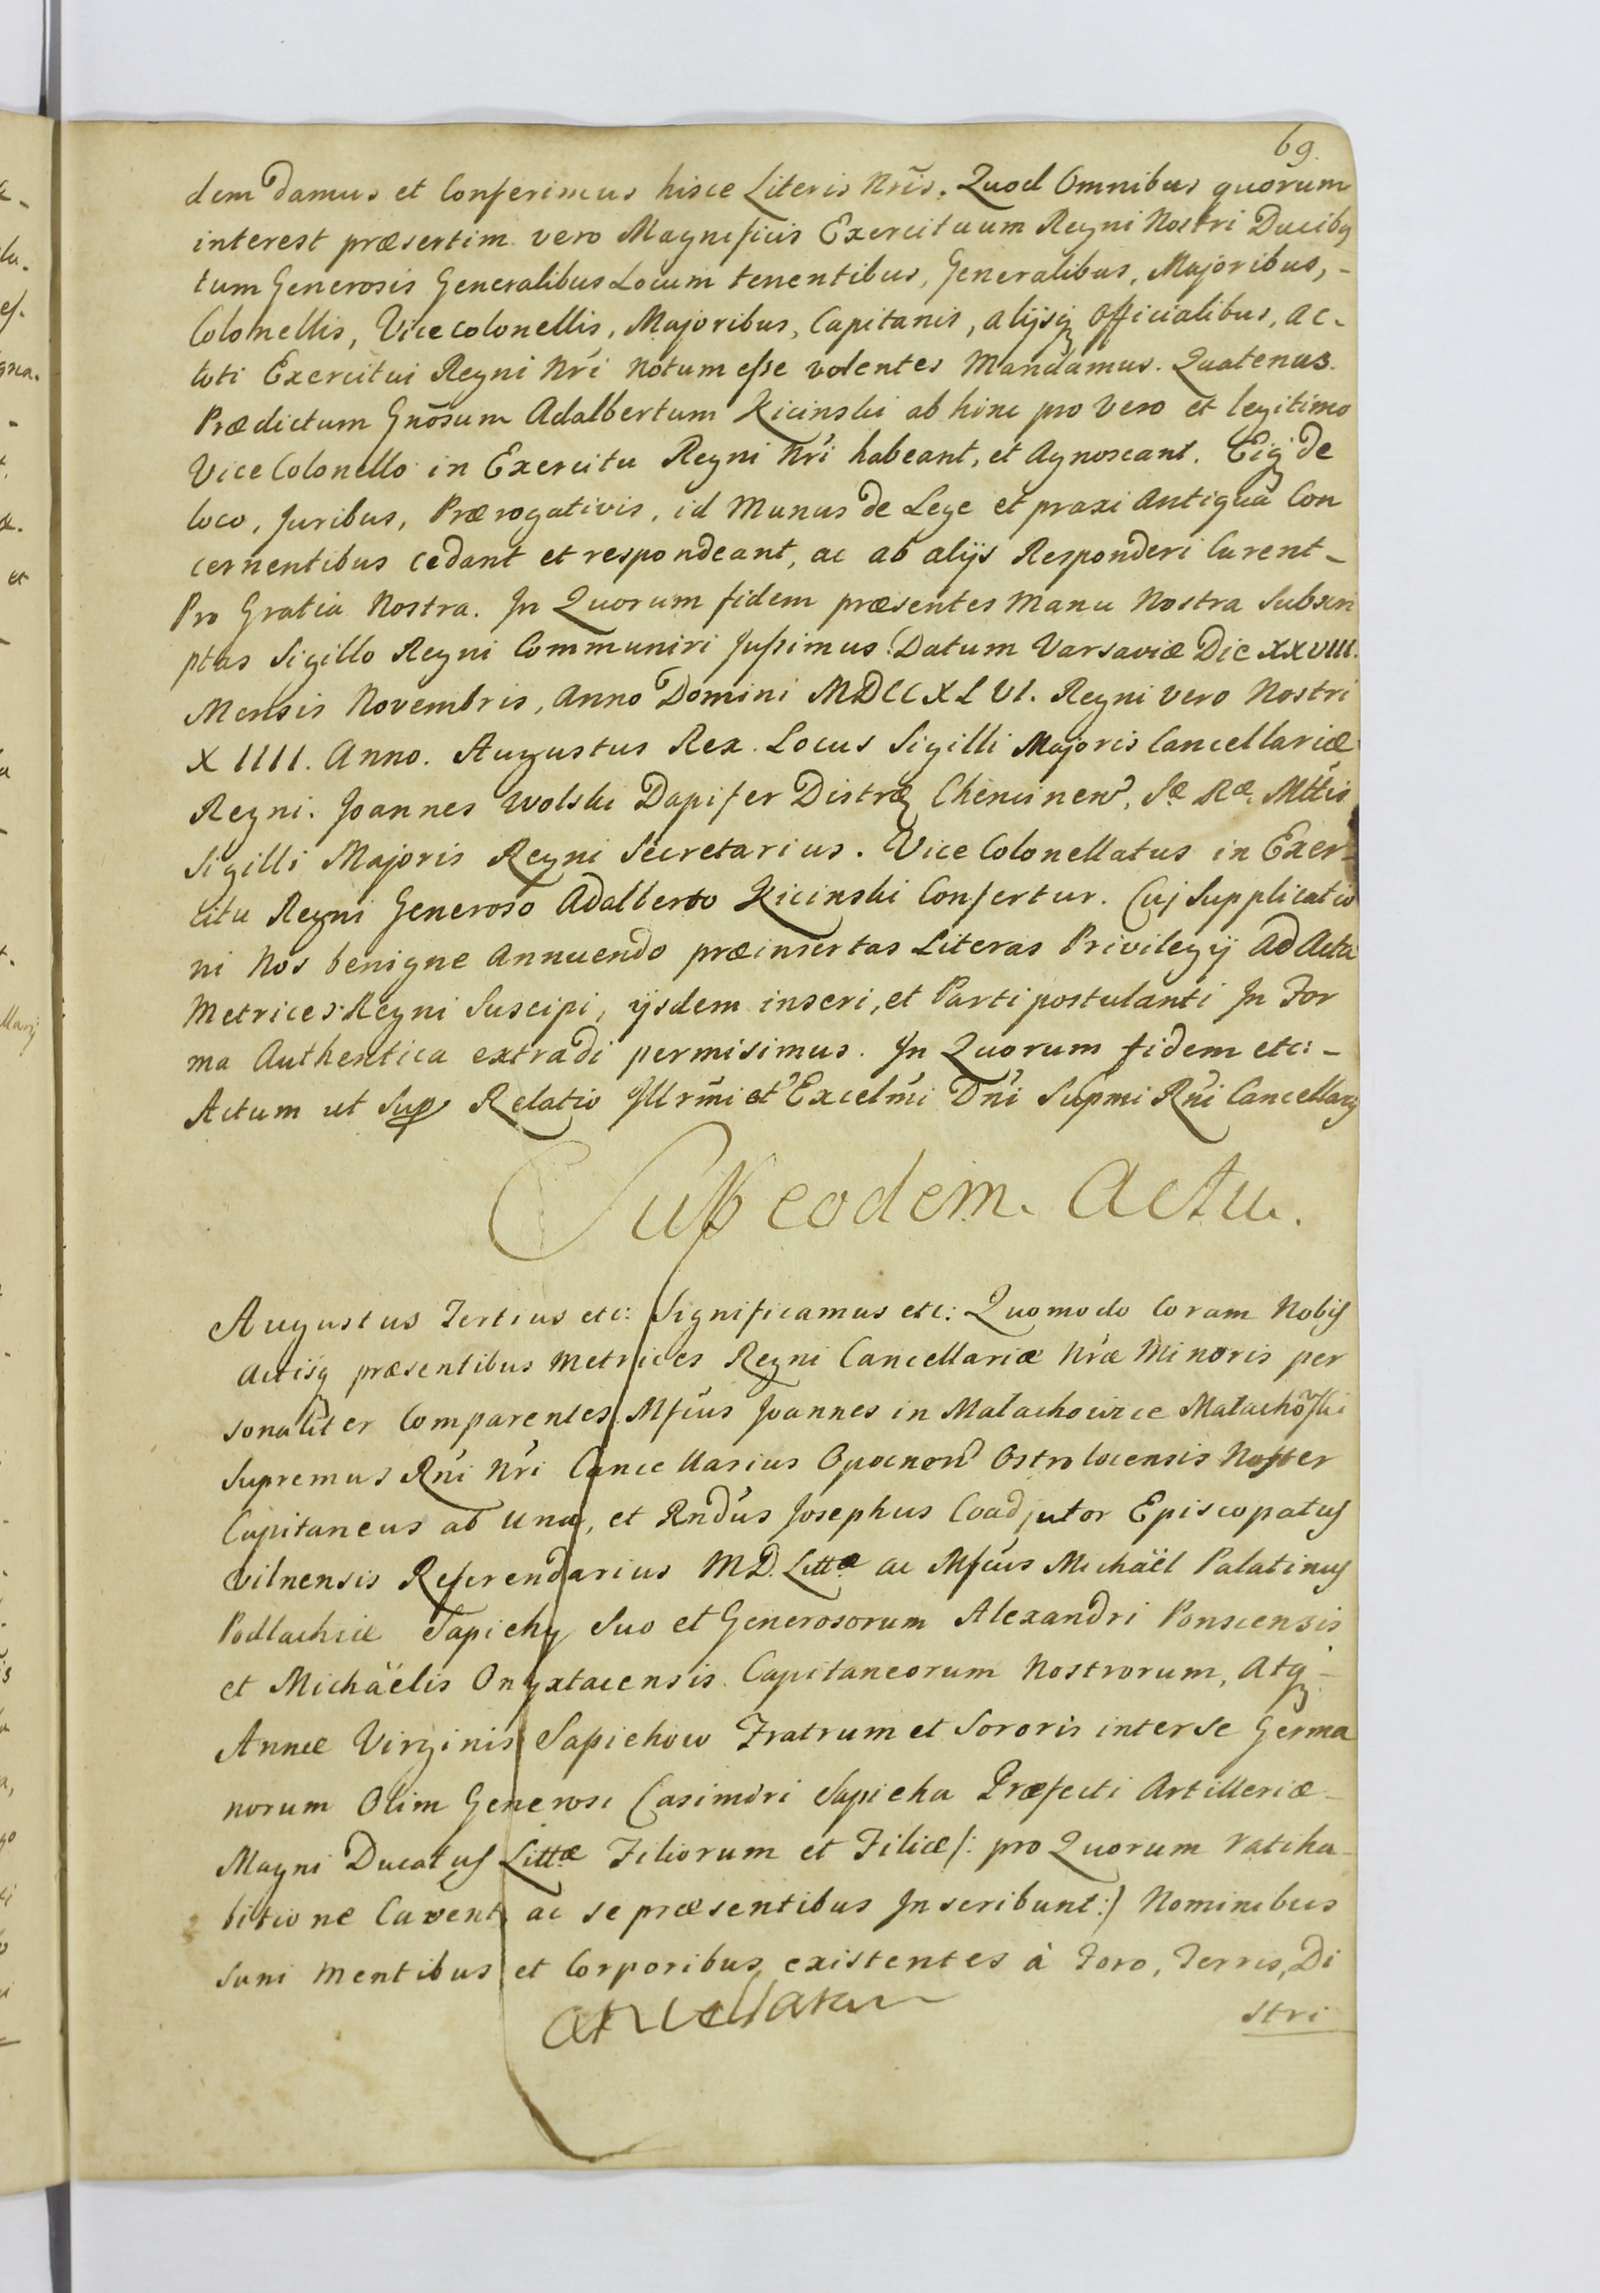 69.
dem damus et Conferimus hisce Literis Nris. Quod Omnibus quorum
interest præsertim vero Magnificis Exercituum Regni Nostri Ducibq
tum Generosis Generalibus Locum tenentibus, Generalibus, Majoribus, -
Colonellis, Vice colonellis, Majoribus, Capitanis, alijsq Officialibus, ac -
toti Exercitui Regni Nri Notum esse volentes Mandamus. Quatenus.
Prædictum Gnosum Adalbertum Kicinski ab hinc pro Vero et legitimo
Vice Colonello in Exercitu Regni Nri habeant, et Agnoscant. Eiq de
loco, Juribus, Prærogativis, id Munus de Lege et praxi Antiqua Con
cernentibus cedant et respondeant, ac ab alijs Responderi Curent -
Pro Gratia Nostra. In Quorum fidem præsentes Manu Nostra Subscri
ptas Sigillo Regni Communiri Jussimus. Datum Varsaviæ Die XXVIII.
Mensis Novembris, Anno Domini MDCCXLVI. Regni vero Nostri
XIIII. Anno. Augustus Rex. Locus Sigilli Majoris Cancellariæ
Regni. Joannes Wolski Dapifer Districtq Chencinen, Sæ Ræ. Mttis
Sigilli Majoris Regni Secretarius. Vice Colonellatus in Exer-
citu Regni Generoso Adalberto Kicinski Confertur. Cuj Supplicatio
ni Nos benigne Annuendo præinsertas Literas Privilegij ad Acta
Metrices Regni Suscipi, ijsdem inseri, et Parti postulanti In For
ma Authentica extradi permisimus. In Quorum fidem etc: -
Actum ut Sup Relatio Illrmi et Excelmi Dni Supmi Rni Cancellarij
Sub eodem Actu.
Augustus Tertius etc: Significamus etc: Quomodo Coram Nobis
Actisq præsentibus Metrices Regni Cancellariæ Nræ Minoris per
sonaliter Comparentes Mfcus Joannes in Malachowice Malachoski
Supremus Rni Nri Cancellarius Opocnen Ostrolocensis Noster
Capitaneus ab Una, et Rndus Josephus Coadjutor Episcopatus
Vilnensis Referendarius M.D. Littæ ac Mfcus Michaël Palatinus
Podlachiæ Sapiehy Suo et Generosorum Alexandri Ponscensis
et Michäelis Onyxtacensis Capitaneorum Nostrorum, Atq -
Annæ Virginis Sapiehow Fratrum et Sororis inter Se Germa
norum Olim Generosi Casimiri Sapieha Præfecti Artilleriæ -
Magni Ducatus Littæ Filiorum et Filiæ /: pro Quorum ratiha -
bitione Cavent ac se præsentibus Inscribunt :/ Nominibus
Sani Mentibus et Corporibus existentes à Foro, Terris, Di
stri